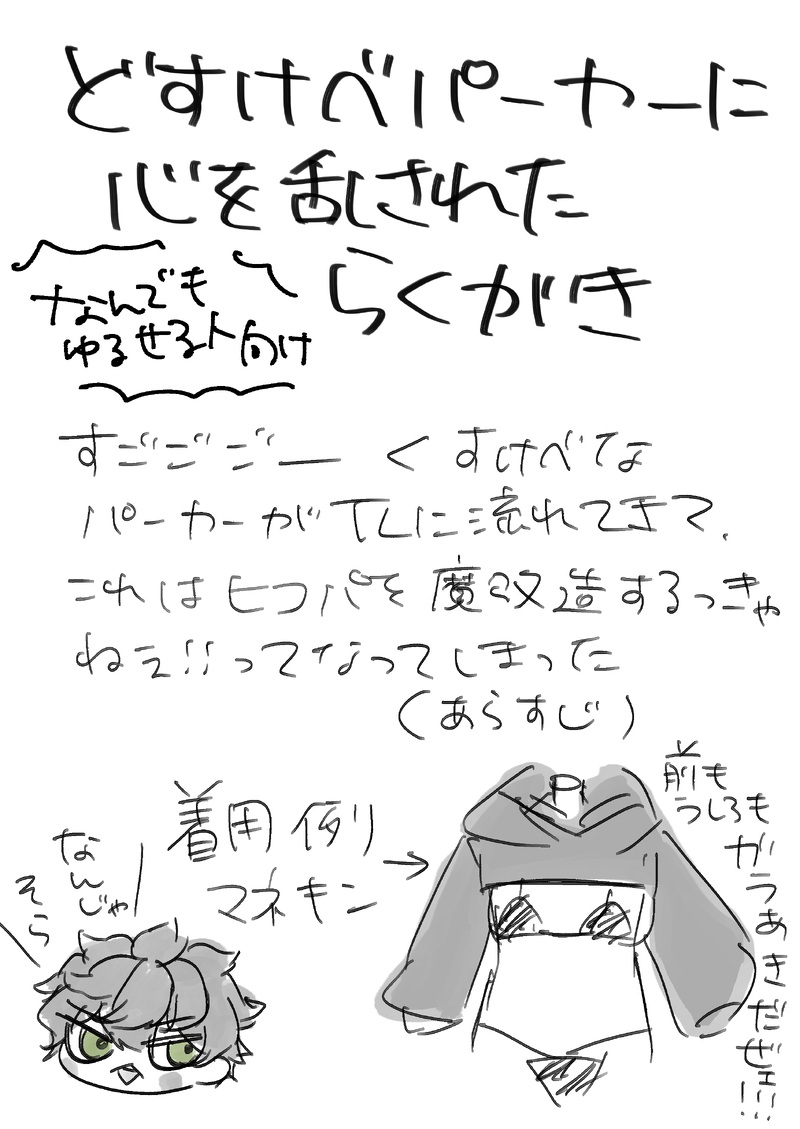 どすけべパーカーに
心を乱された
らくがき
なんでも
ゆるせる人向け
すごごごーくすけべてな
パーカーがTLに流れてきて、
これはヒコパを魔改造するっきゃ
ねぇ!!ってなってしまった
(あらすじ)
着用例
マネキン
→
前も
うしろも
がつあきだぜェ!!!
なんじゃ
そら